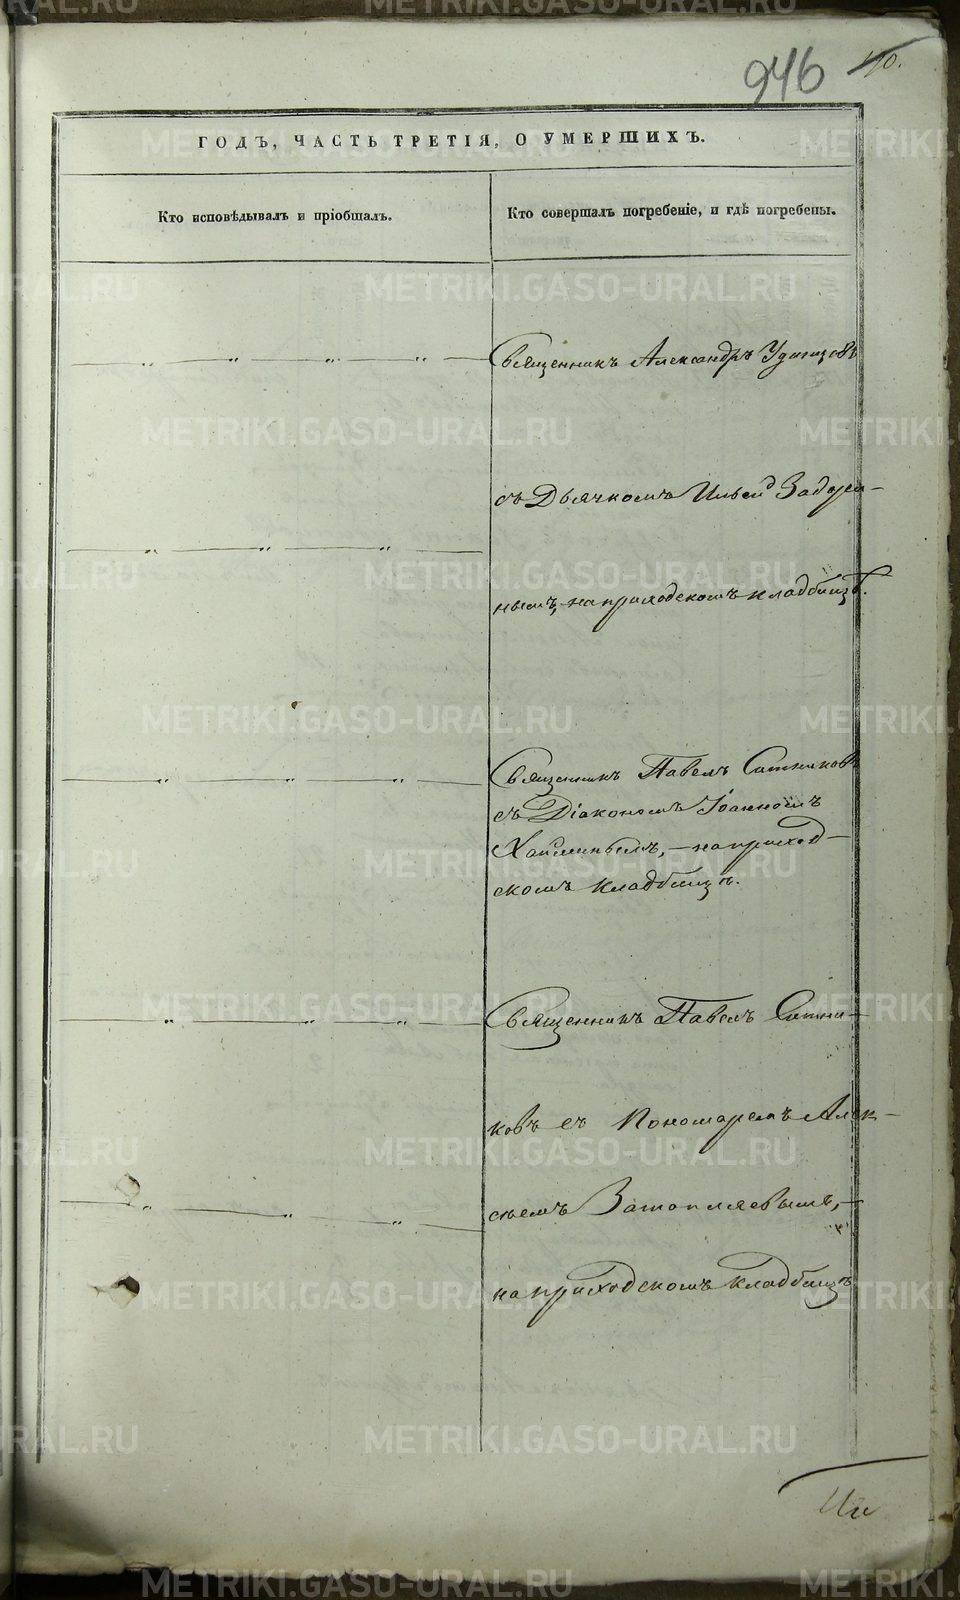 946 40.
ГОДЪ, ЧАСТЬ ТРЕТІЯ, О УМЕРШИХЪ.
Кто исповѣдывалъ и пріобщалъ.
Кто совершалъ погребеніе, и гдѣ погребены.
Священникъ Александръ Удинцовъ
съ Дьячкомъ Ильей
нымъ, на приходскомъ кладбищѣ.
Священникъ Павелъ Сотниковъ
съ Діакономъ Іоанномъ
на приход-
скомъ кладбищѣ.
Священникъ Павелъ Сотни-
ковъ съ Пономаремъ Алек-
сѣемъ Затопляевымъ,
на приходскомъ кладбищѣ
METRIKI.GASO-URAL.RU